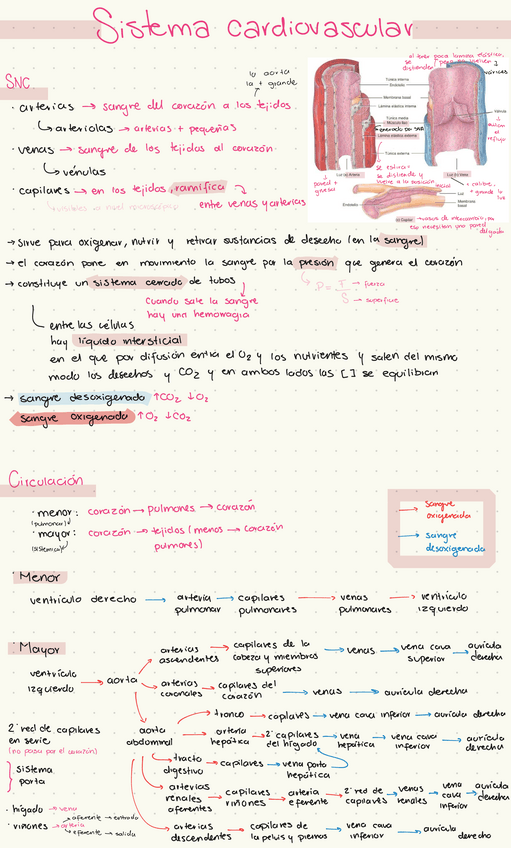 Sistema cardiovascular
SNC.
la aorta
la + grande
· arterias → sangre del corazón a los tejidos.
↳ arteriolas → arterias + pequeñas
· venas → sangre de los tejidos al corazón.
↳ vénulas
· capilares → en los tejidos, ramifica
entre venas y arterias
Túnica interna
Endotelio
Membrana basal
Lámina elástica interna
Túnica media
Músculo liso
Lámina elástica externa
Túnica externa
Válvula
evitan el reflujo
pared + gruesa
se estira →
se distiende y
vuelve a la posición
inicial
+ calibre,
+ grande la luz
Luz
Membrana basal
Endotelio
→ sirve para oxigenar, nutrir y retirar sustancias de desecho (en la sangre)
→ el corazón pone en movimiento la sangre por la presión que genera el corazón
→ constituye un sistema cerrado de tubos
P = F → fuerza
S → superficie
Cuando sale la sangre
hay una hemorragia
entre las células
hay líquido intersticial
en el que por difusión entra el O2 y los nutrientes y salen del mismo
modo los desechos y CO2 y en ambos lados las [ ] se equilibran
→ sangre desoxigenada ↑CO2 ↓O2
sangre oxigenada ↑O2 ↓CO2
Circulación
· menor: corazón → pulmones → corazón
(pulmonar)
· mayor: corazón → tejidos (menos → corazón
(sistémica) pulmones)
→ sangre oxigenada
→ sangre desoxigenada
· Menor
ventrículo derecho → arteria pulmonar → capilares pulmonares → venas pulmonares → ventrículo izquierdo
· Mayor
ventrículo izquierdo → aorta
arterias ascendentes → capilares de la cabeza y miembros superiores → venas → vena cava superior → aurícula derecha
arterias coronales → capilares del corazón → venas → aurícula derecha
aorta abdominal
tronco → capilares → vena cava inferior → aurícula derecha
arteria hepática → 2º capilares del hígado → vena hepática → vena cava inferior → aurícula derecha
tracto digestivo → capilares → vena porta hepática
arterias renales aferentes → capilares riñones → arteria eferente → 2º red de capilares → venas renales → vena cava inferior → aurícula derecha
arterias descendentes → capilares de la pelvis y piernas → vena cava inferior → aurícula derecha
2º red de capilares
en serie
(no pasa por el corazón)
sistema
porta
· hígado → vena
· riñones → arteria
aferente → entrada
eferente → salida